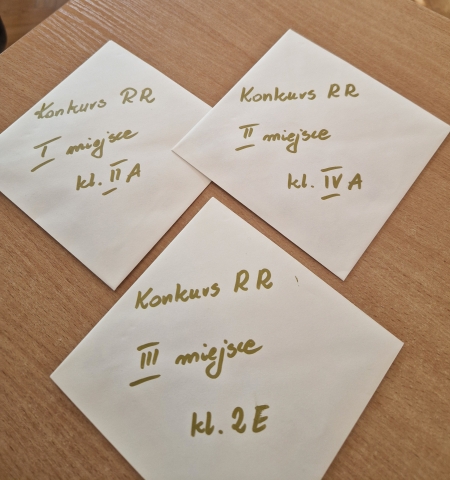 Konkurs RR
I miejsce
kl. II A
Konkurs RR
II miejsce
kl. IV A
Konkurs RR
III miejsce
kl. 2 E